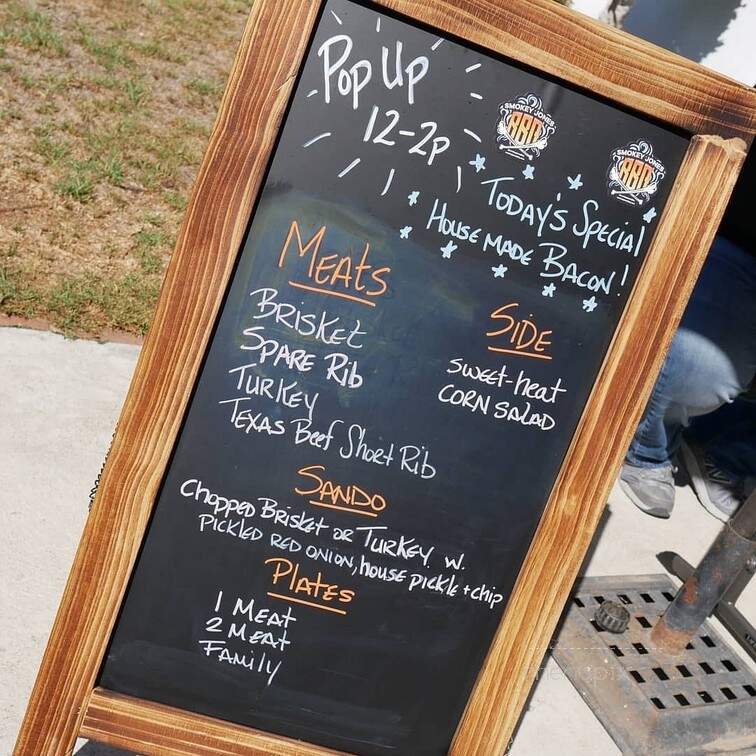 Pop Up
12-2p
SMOKEY JONES
BBQ
SMOKEY JONES
BBQ
TODAY'S SPECIAL
HOUSE MADE BACON!
MEATS
BRISKET
SPARE Rib
TURKEY
TEXAS Beef Short Rib
SIDE
SWEET-heat
CORN SALAD
SANDO
Chopped Brisket or Turkey w.
PICKLED RED ONION, house pickle + chip
PLATES
1 MEAT
2 MEAT
FAMily